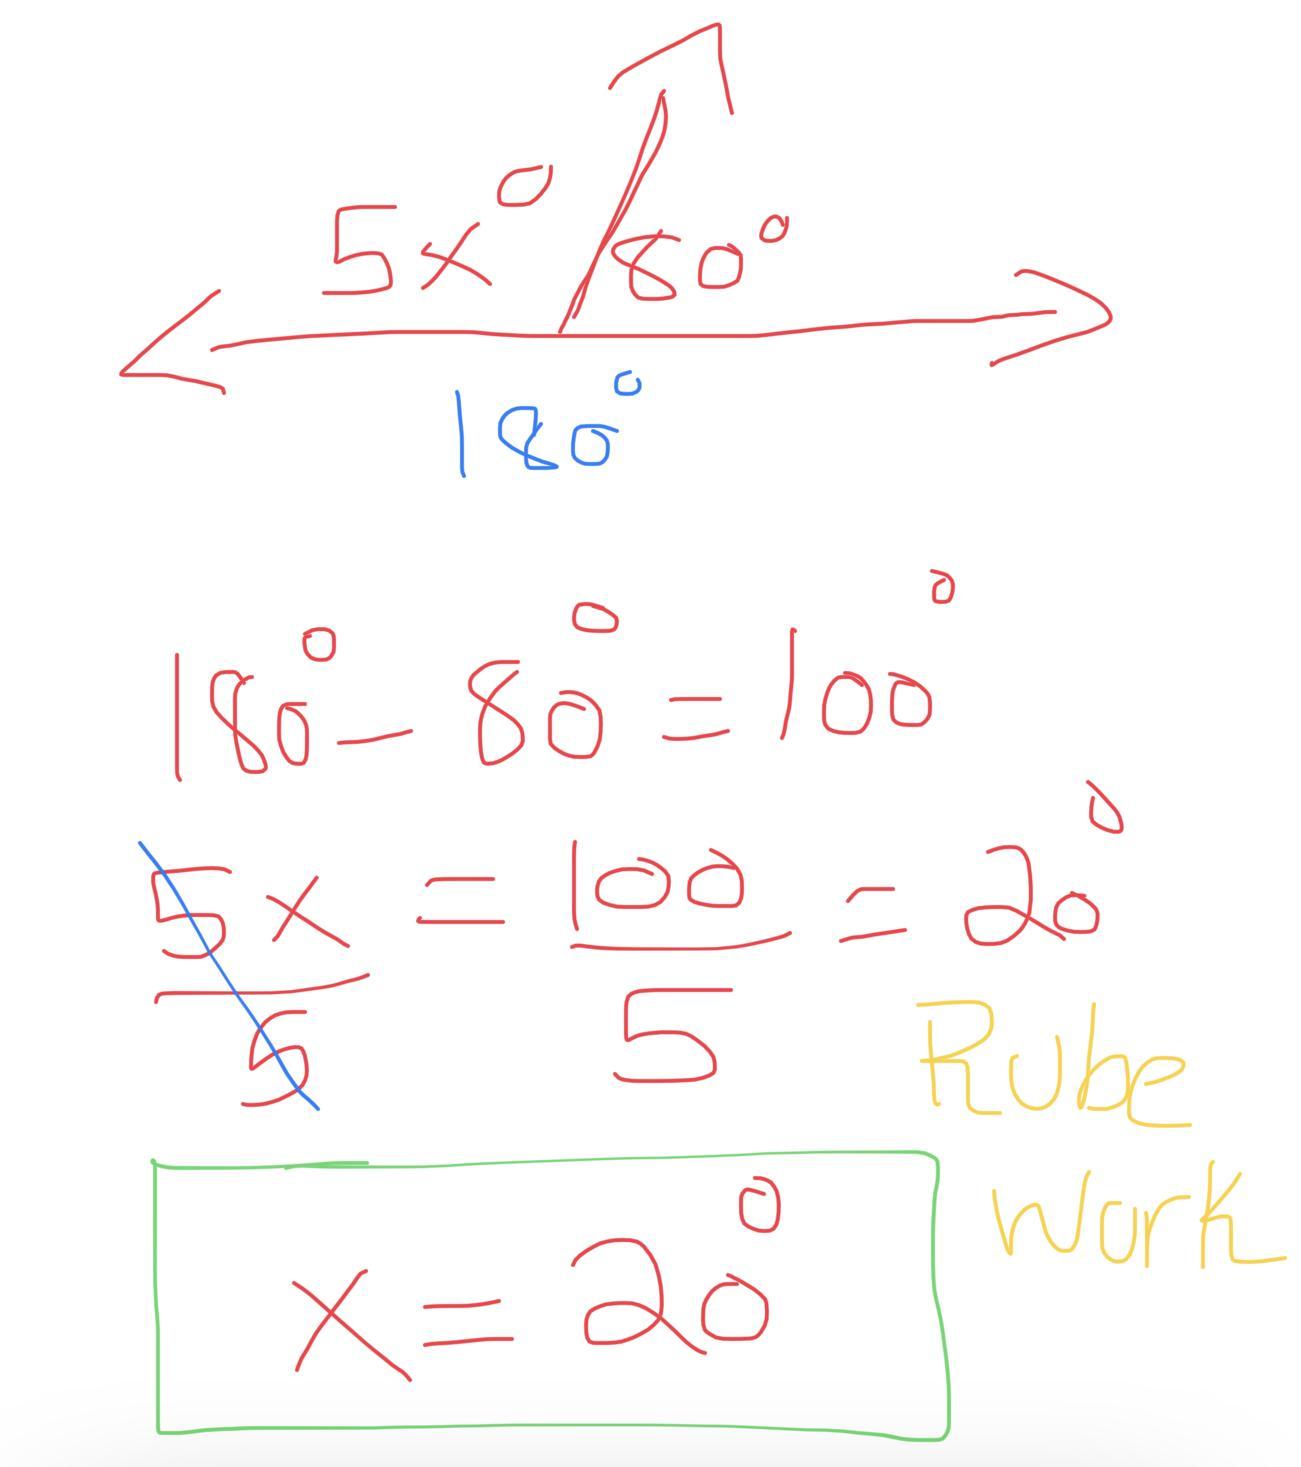 5x° 80°
180°
180° - 80° = 100°
5x/5 = 100/5 = 20°
Rube
Work
x = 20°